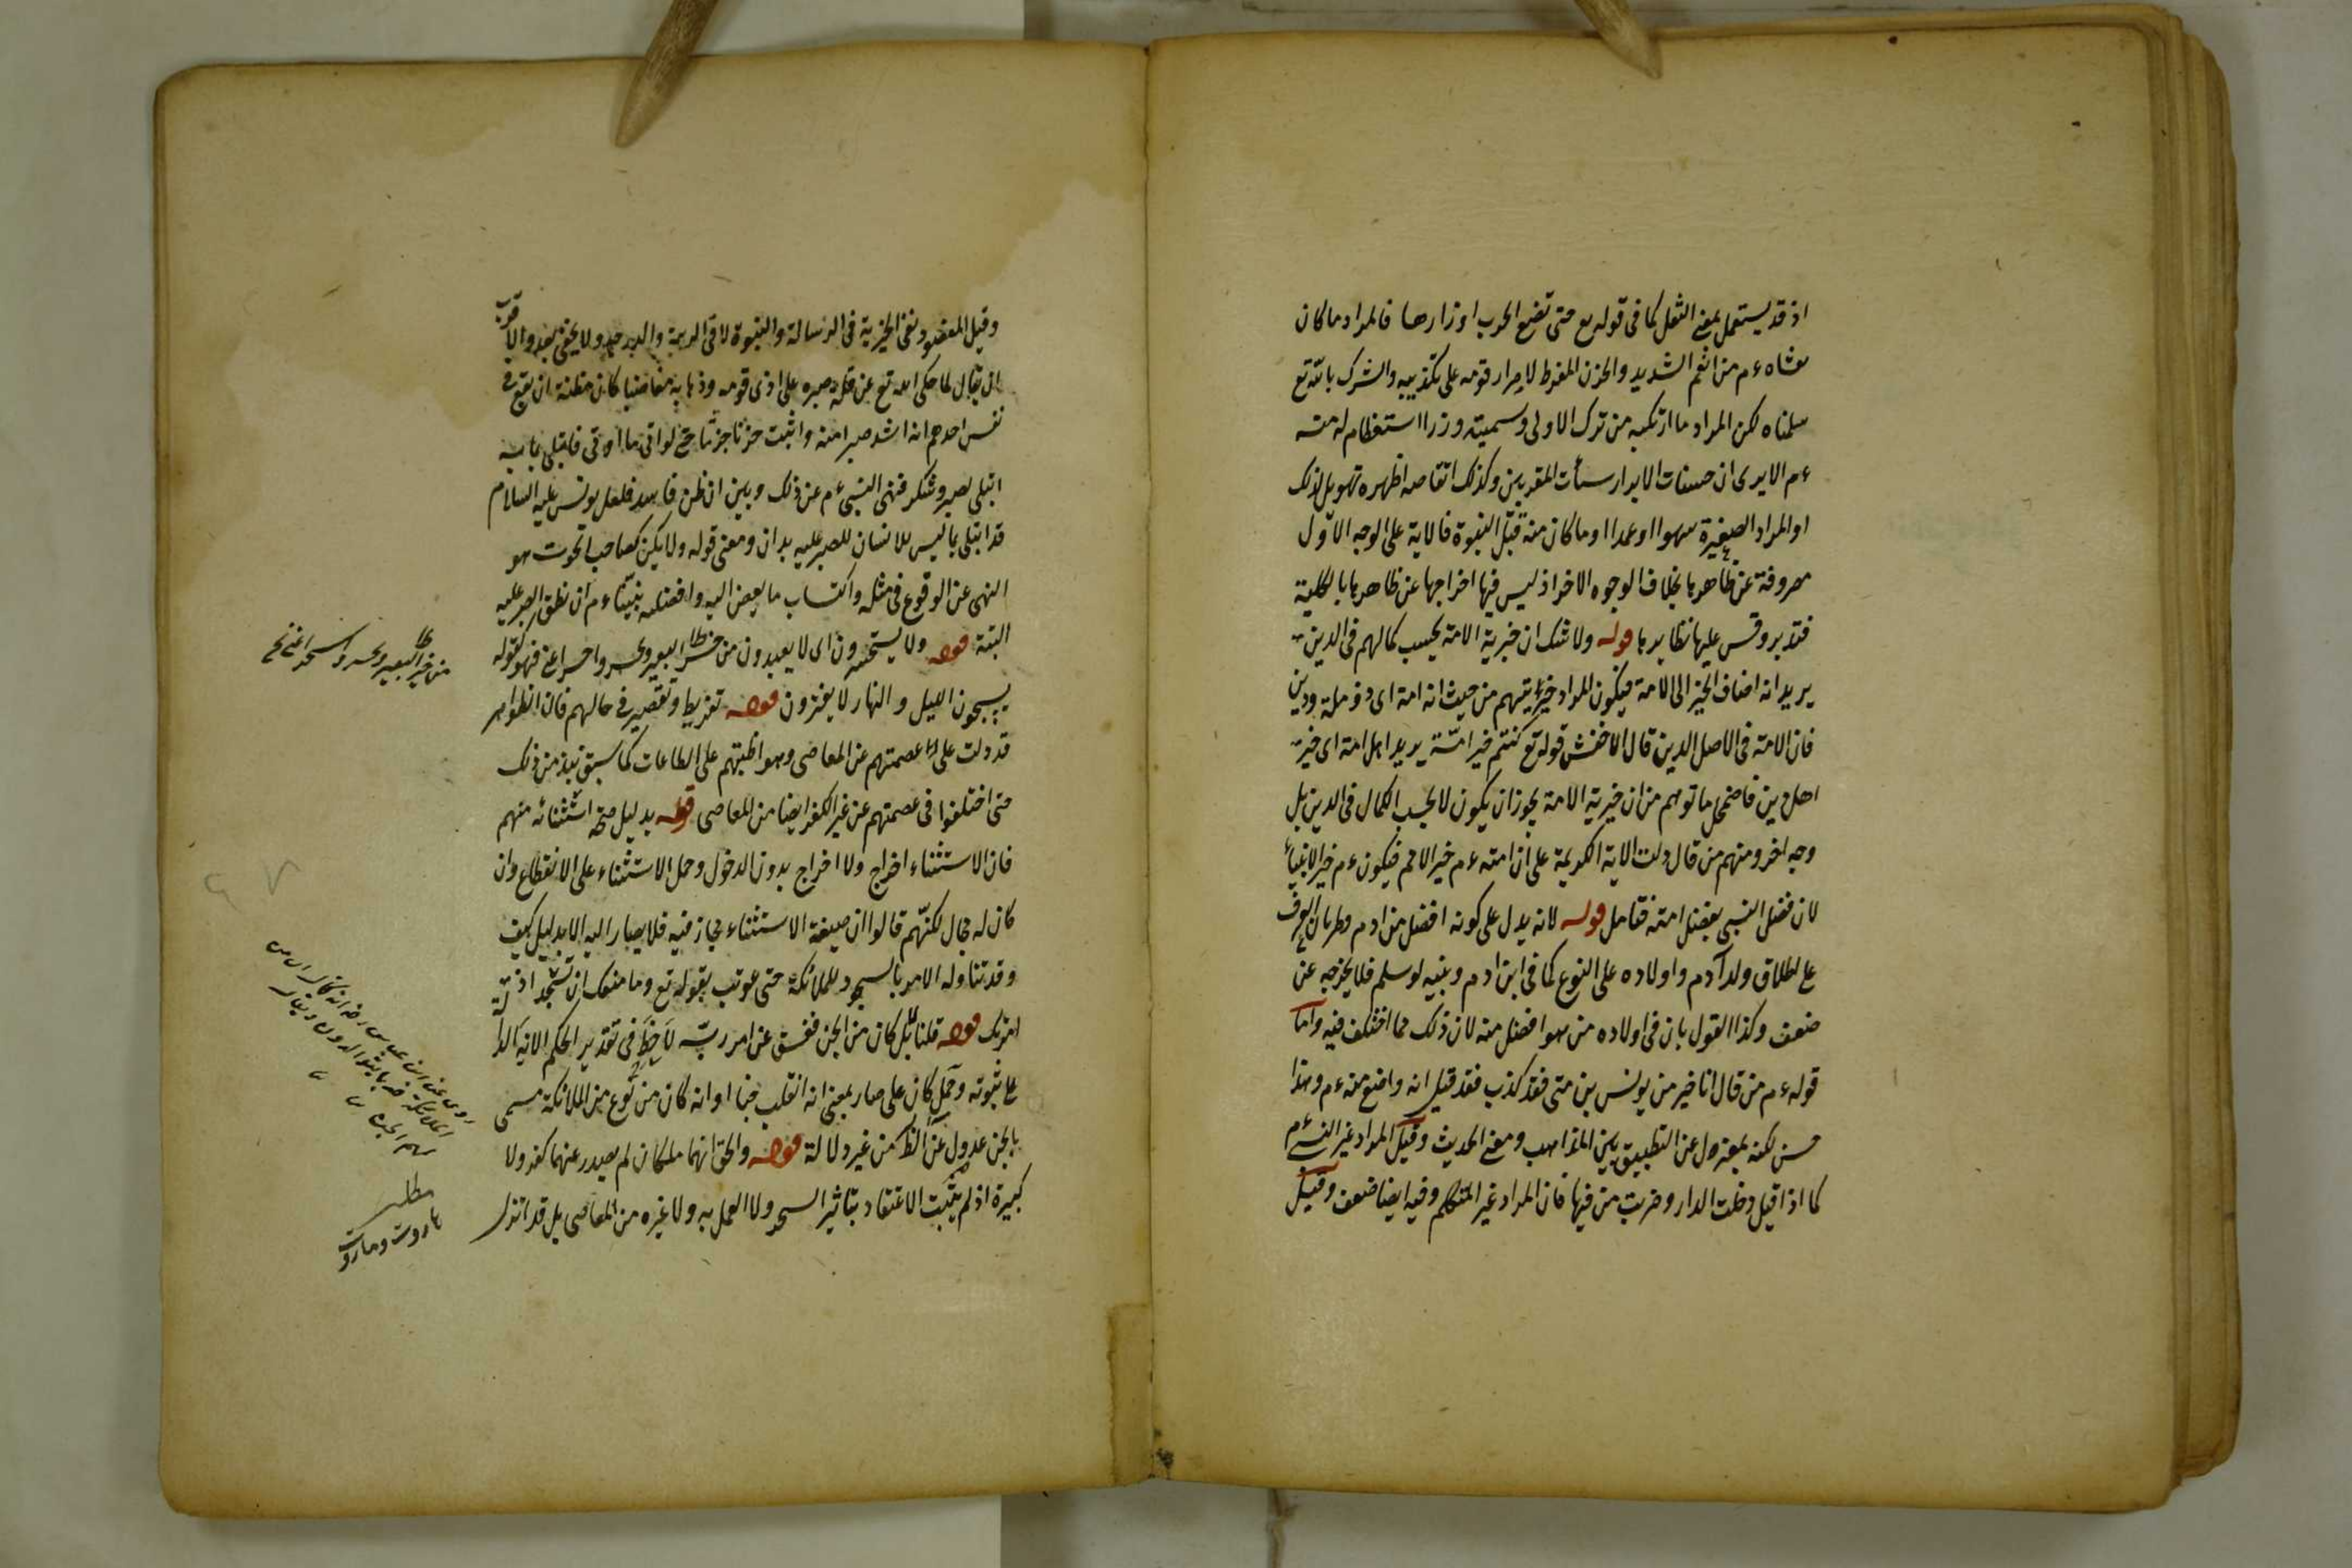 اذ قد يستعمل بمعنى الثقل كما فى قوله تع حتى تضع الحرب اوزارها فالمراد ما كان
يغشاه ءم من الغم الشديد والحزن المفرط لاصرار قومه على تكذيبه والشرك بالله تع
سلمناه لكن المراد ما ارتكبه من ترك الاولى وتسميته وزرا استعظام له منه
ءم الا يرى ان حسنات الابرار سيأت المقربين وكذلك انقاضه اظهره تهويل لذلك
او المراد الصغيرة سهوا او عمدا او ما كان منه قبل النبوة فالاية على الوجه الاول
مصروفة عن ظاهرها بخلاف الوجوه الاخر اذ ليس فيها اخراجها عن ظاهرها بالكلية
فتدبر وقس عليها نظايرها قوله ولا شك ان خيرية الامة بحسب كمالهم فى الدين
يريد انه اضاف الخير الى الامة فيكون المراد خيريتهم من حيث انه امة اى ذو ملة ودين
فان الامة فى الاصل الدين قال الاخفش قوله تع كنتم خير امة يريد اهل امة اى خير
اهل دين فاضمحل ما توهم من ان خيرية الامة يجوز ان يكون لا بحسب الكمال فى الدين بل
وجه اخر ومنهم من قال دلت الاية الكريمة على ان امته ءم خير الامم فيكون ءم خير الانبياء
لان فضل النبى بفضل امته فتامل قوله لانه يدل على كونه افضل من ادم وطريان العرف
على اطلاق ولد آدم واولاده على النوع كما فى ابن ادم وبنيه لو سلم فلا يخرجه عن
ضعف وكذا القول بان فى اولاده من هو افضل منه لان ذلك مما اختلف فيه واما
قوله ءم من قال انا خير من يونس بن متى فقد كذب فقد قيل انه واضع منه ءم وهذا
حسن لكنه بمعزول عن التطبيق بين المذاهب ومعنى الحديث وقيل المراد غير النبى ءم
كما اذا قيل دخلت الدار وضربت من فيها فان المراد غير المتكلم وفيه ايضا ضعف وقيل
وقيل المقصود نفى الخيرية فى الرسالة والنبوة لا فى المرتبة والدرجة ولا يخفى بعده والاقرب
ان يقال لما حكى الله تع عن قلة صبره على اذى قومه وذهابه مغاضبا كان مظنة ان يقع فى
نفس احدهم انه اشد صبرا منه واثبت حتى لو اتى ما اوتى فابتلى بما به
ابتلى لصبر وشكر فنهى النبى ءم عن ذلك وبين ان ظن فاسد فلعل يونس عليه السلام
قد ابتلى بما ليس للانسان للصبر عليه يدان ومعنى قوله ولا تكن كصاحب الحوت هو
النهى عن الوقوع فى مثله واكتساب ما يفضى اليه وافضلية نبيناءم ان نطق الصبر عليه
البتة قوله ولا يستحسرون اى لا يعيدون من حسر البعير وحسر واحسر اعنى فهو كقوله
يسبحون الليل والنهار لا يفترون قوله تفريط وتقصير فى حالهم فان الظواهر
قد دلت على عصمتهم عن المعاصى ومواظبتهم على الطاعات كما سبق نبذ من ذلك
حتى اختلفوا فى عصمتهم عن غير الكفر ايضا من المعاصى قوله بدليل صحة استثنائه منهم
فان الاستثناء اخراج ولا اخراج بدون الدخول وحمل الاستثناء على الانقطاع وان
كان له مجال لكنهم قالوا ان صيغة الاستثناء مجاز فيه فلا يصار اليه الا بدليل كيف
وقد تناوله الامر بالسجود للملائكة حتى عوتب بقوله تع وما منعك ان تسجد اذ
امرتك قوله قلنا بل كان من الجن ففسق عن امر ربه فى تقدير الحكم الا انه
على ثبوته وحمل كان على صار بمعنى انه انقلب جنا او انه كان من نوع من الملائكة مسمى
بالجن عدول عن الظ من غير دلالة قوله والحق انهما ملكان لم يصدر عنهما كفر ولا
كبيرة اذ لم يثبت الاعتقاد بتأثير السحر ولا العمل به ولا غيره من المعاصى بل قد انزل
روى عن ابن عباس رضه انه قال ان من
الملائكة ضربا يتوالدون ويقال
لهم الجن
مطلب
هاروت وماروت